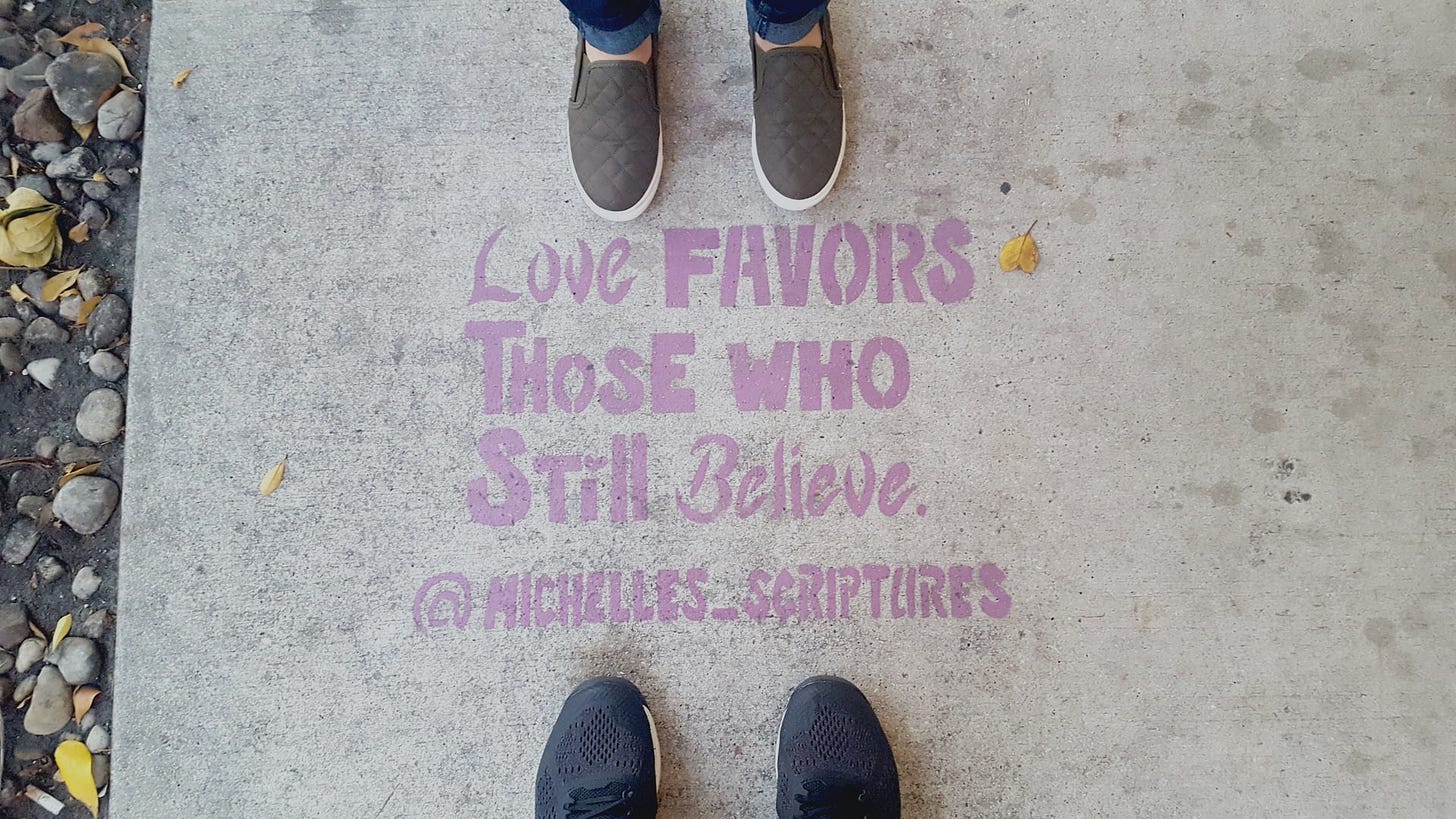 Love FAVORS
THosE WHO
STill Believe.
@MICHELLES_SCRIPTURES